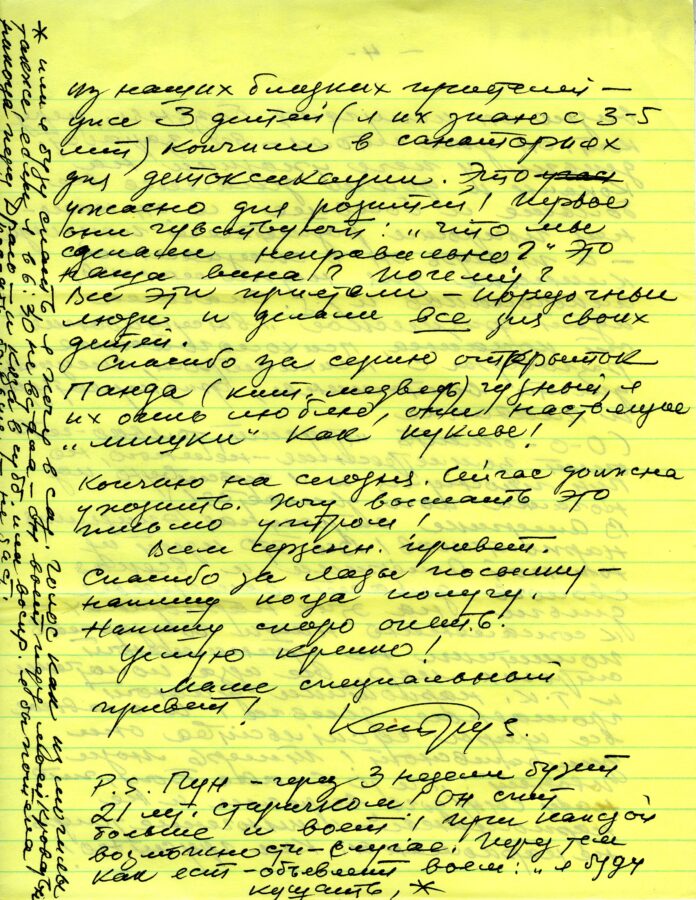 из наших близких приятелей —
уже 3 детей (я их знаю с 3-5
лет) кончили в санаториях
для детоксикации. Это
ужасно для родителей! Первое
они чувствуют: "что мы
сделали неправильно?" Это
наша вина? Почему?
Все эти приятели — порядочные
люди и делали все для своих
детей.
Спасибо за серию открыток
Панда (кит. медведь) чудный, я
их очень люблю, они настоящие
"мишки" как куклы!
Кончаю на сегодня. Сейчас должна
уходить. Хочу выслать это
письмо утром!
Всем сердечн. привет.
Спасибо за Лады посылку —
напишу когда получу.
Напишу скоро опять.
Целую крепко!
Маме специальный
привет!
P.S. Пун — через 3 недели будет
21 лет. старичком! Он спит
больше и воет! при каждой
возможности-случае. Перед тем
как ест — объявляет воем: "я буду
кушать, *
* или я буду спать я хочу в сад! голос как из могилы
также, если я в 6:30 не встала — он воет перед моей кроватью